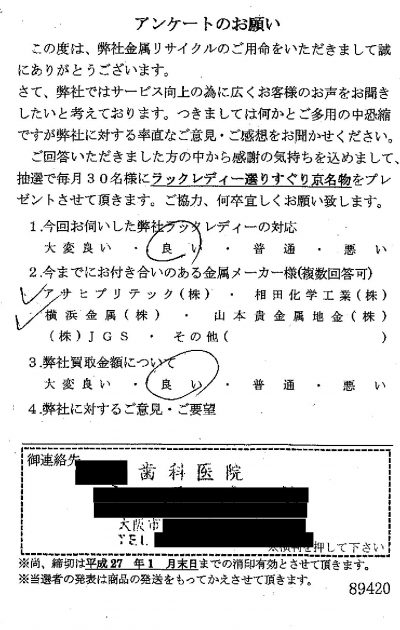 アンケートのお願い
この度は、弊社金属リサイクルのご用命をいただきまして誠
にありがとうございます。
さて、弊社ではサービス向上の為に広くお客様のお声をお聞き
したいと考えております。つきましては何かとご多用の中恐縮
ですが弊社に対する率直なご意見・ご感想をお聞かせください。
ご回答いただきました方の中から感謝の気持ちを込めまして、
抽選で毎月30名様にラックレディー選りすぐり京名物をプレ
ゼントさせて頂きます。ご協力、何卒宜しくお願い致します。
1.今回お伺いした弊社ラックレディーの対応
大変良い・良い・普通・悪い
2.今までにお付き合いのある金属メーカー様(複数回答可)
アサヒプリテック(株)・相田化学工業(株)
横浜金属(株)・山本貴金属地金(株)
(株)JGS・その他( )
3.弊社買取金額について
大変良い・良い・普通・悪い
4.弊社に対するご意見・ご要望
御連絡先
歯科医院
大阪市
TEL
を押して下さい
※尚、締切は平成27年1月末日までの消印有効とさせて頂きます。
※当選者の発表は商品の発送をもってかえさせて頂きます。
89420